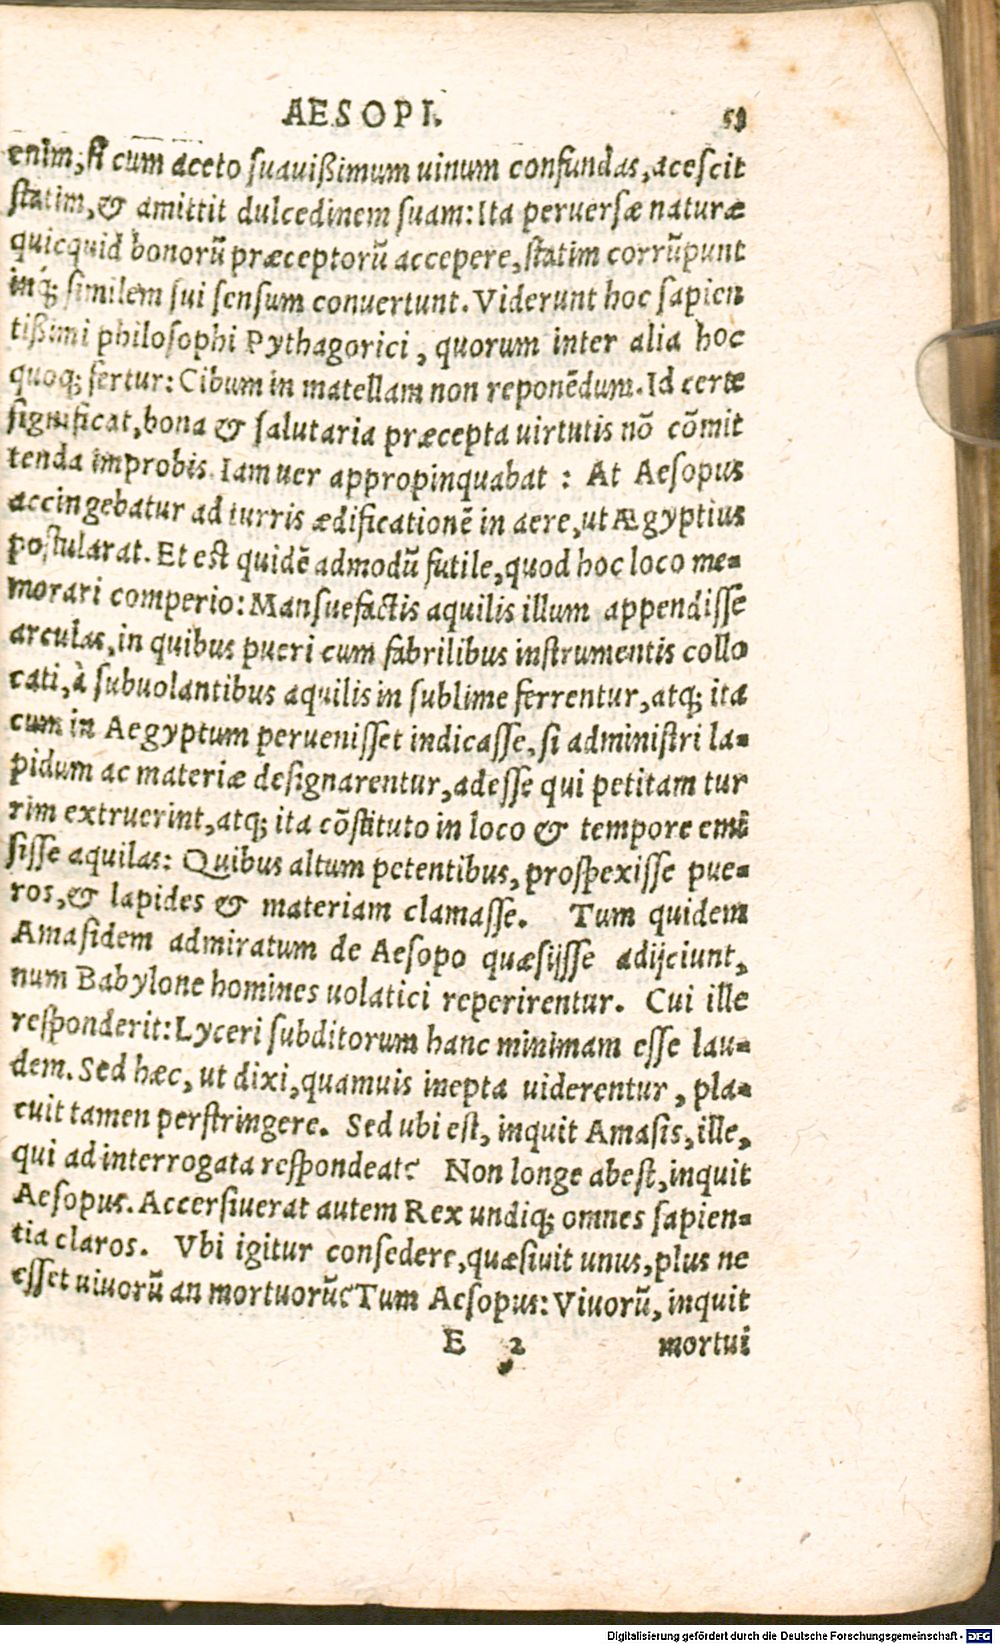 AESOPI.
enim, si cum aceto suauißimum uinum confundas, acescit
statim, & amittit dulcedinem suam: Ita peruersæ naturæ
quicquid bonorū præceptorū accepere, statim corrūpunt
inq́; similem sui sensum conuertunt. Viderunt hoc sapien
tißimi philosophi Pythagorici, quorum inter alia hoc
quoq; fertur: Cibum in matellam non reponēdum. Id certe
significat, bona & salutaria præcepta uirtutis nō cōmit
tenda improbis. Iam uer appropinquabat : At Aesopus
accingebatur ad turris ædificationē in aere, ut Ægyptius
postularat. Et est quidē admodū futile, quod hoc loco me-
morari comperio: Mansuefactis aquilis illum appendisse
arculas, in quibus pueri cum fabrilibus instrumentis collo
cati, à subuolantibus aquilis in sublime ferrentur, atq; ita
cum in Aegyptum peruenisset indicasse, si administri la-
pidum ac materiæ designarentur, adesse qui petitam tur
rim extruerint, atq; ita cōstituto in loco & tempore emi
sisse aquilas: Quibus altum petentibus, prospexisse pue-
ros, & lapides & materiam clamasse. Tum quidem
Amasidem admiratum de Aesopo quæsijsse adijciunt,
num Babylone homines uolatici reperirentur. Cui ille
responderit: Lyceri subditorum hanc minimam esse lau-
dem. Sed hæc, ut dixi, quamuis inepta uiderentur, pla-
cuit tamen perstringere. Sed ubi est, inquit Amasis, ille,
qui ad interrogata respondeat? Non longe abest, inquit
Aesopus. Accersiuerat autem Rex undiq; omnes sapien-
tia claros. Vbi igitur consedere, quæsiuit unus, plus ne
esset uiuorū an mortuorū? Tum Aesopus: Viuorū, inquit
E 2 mortui
Digitalisierung gefördert durch die Deutsche Forschungsgemeinschaft - DFG